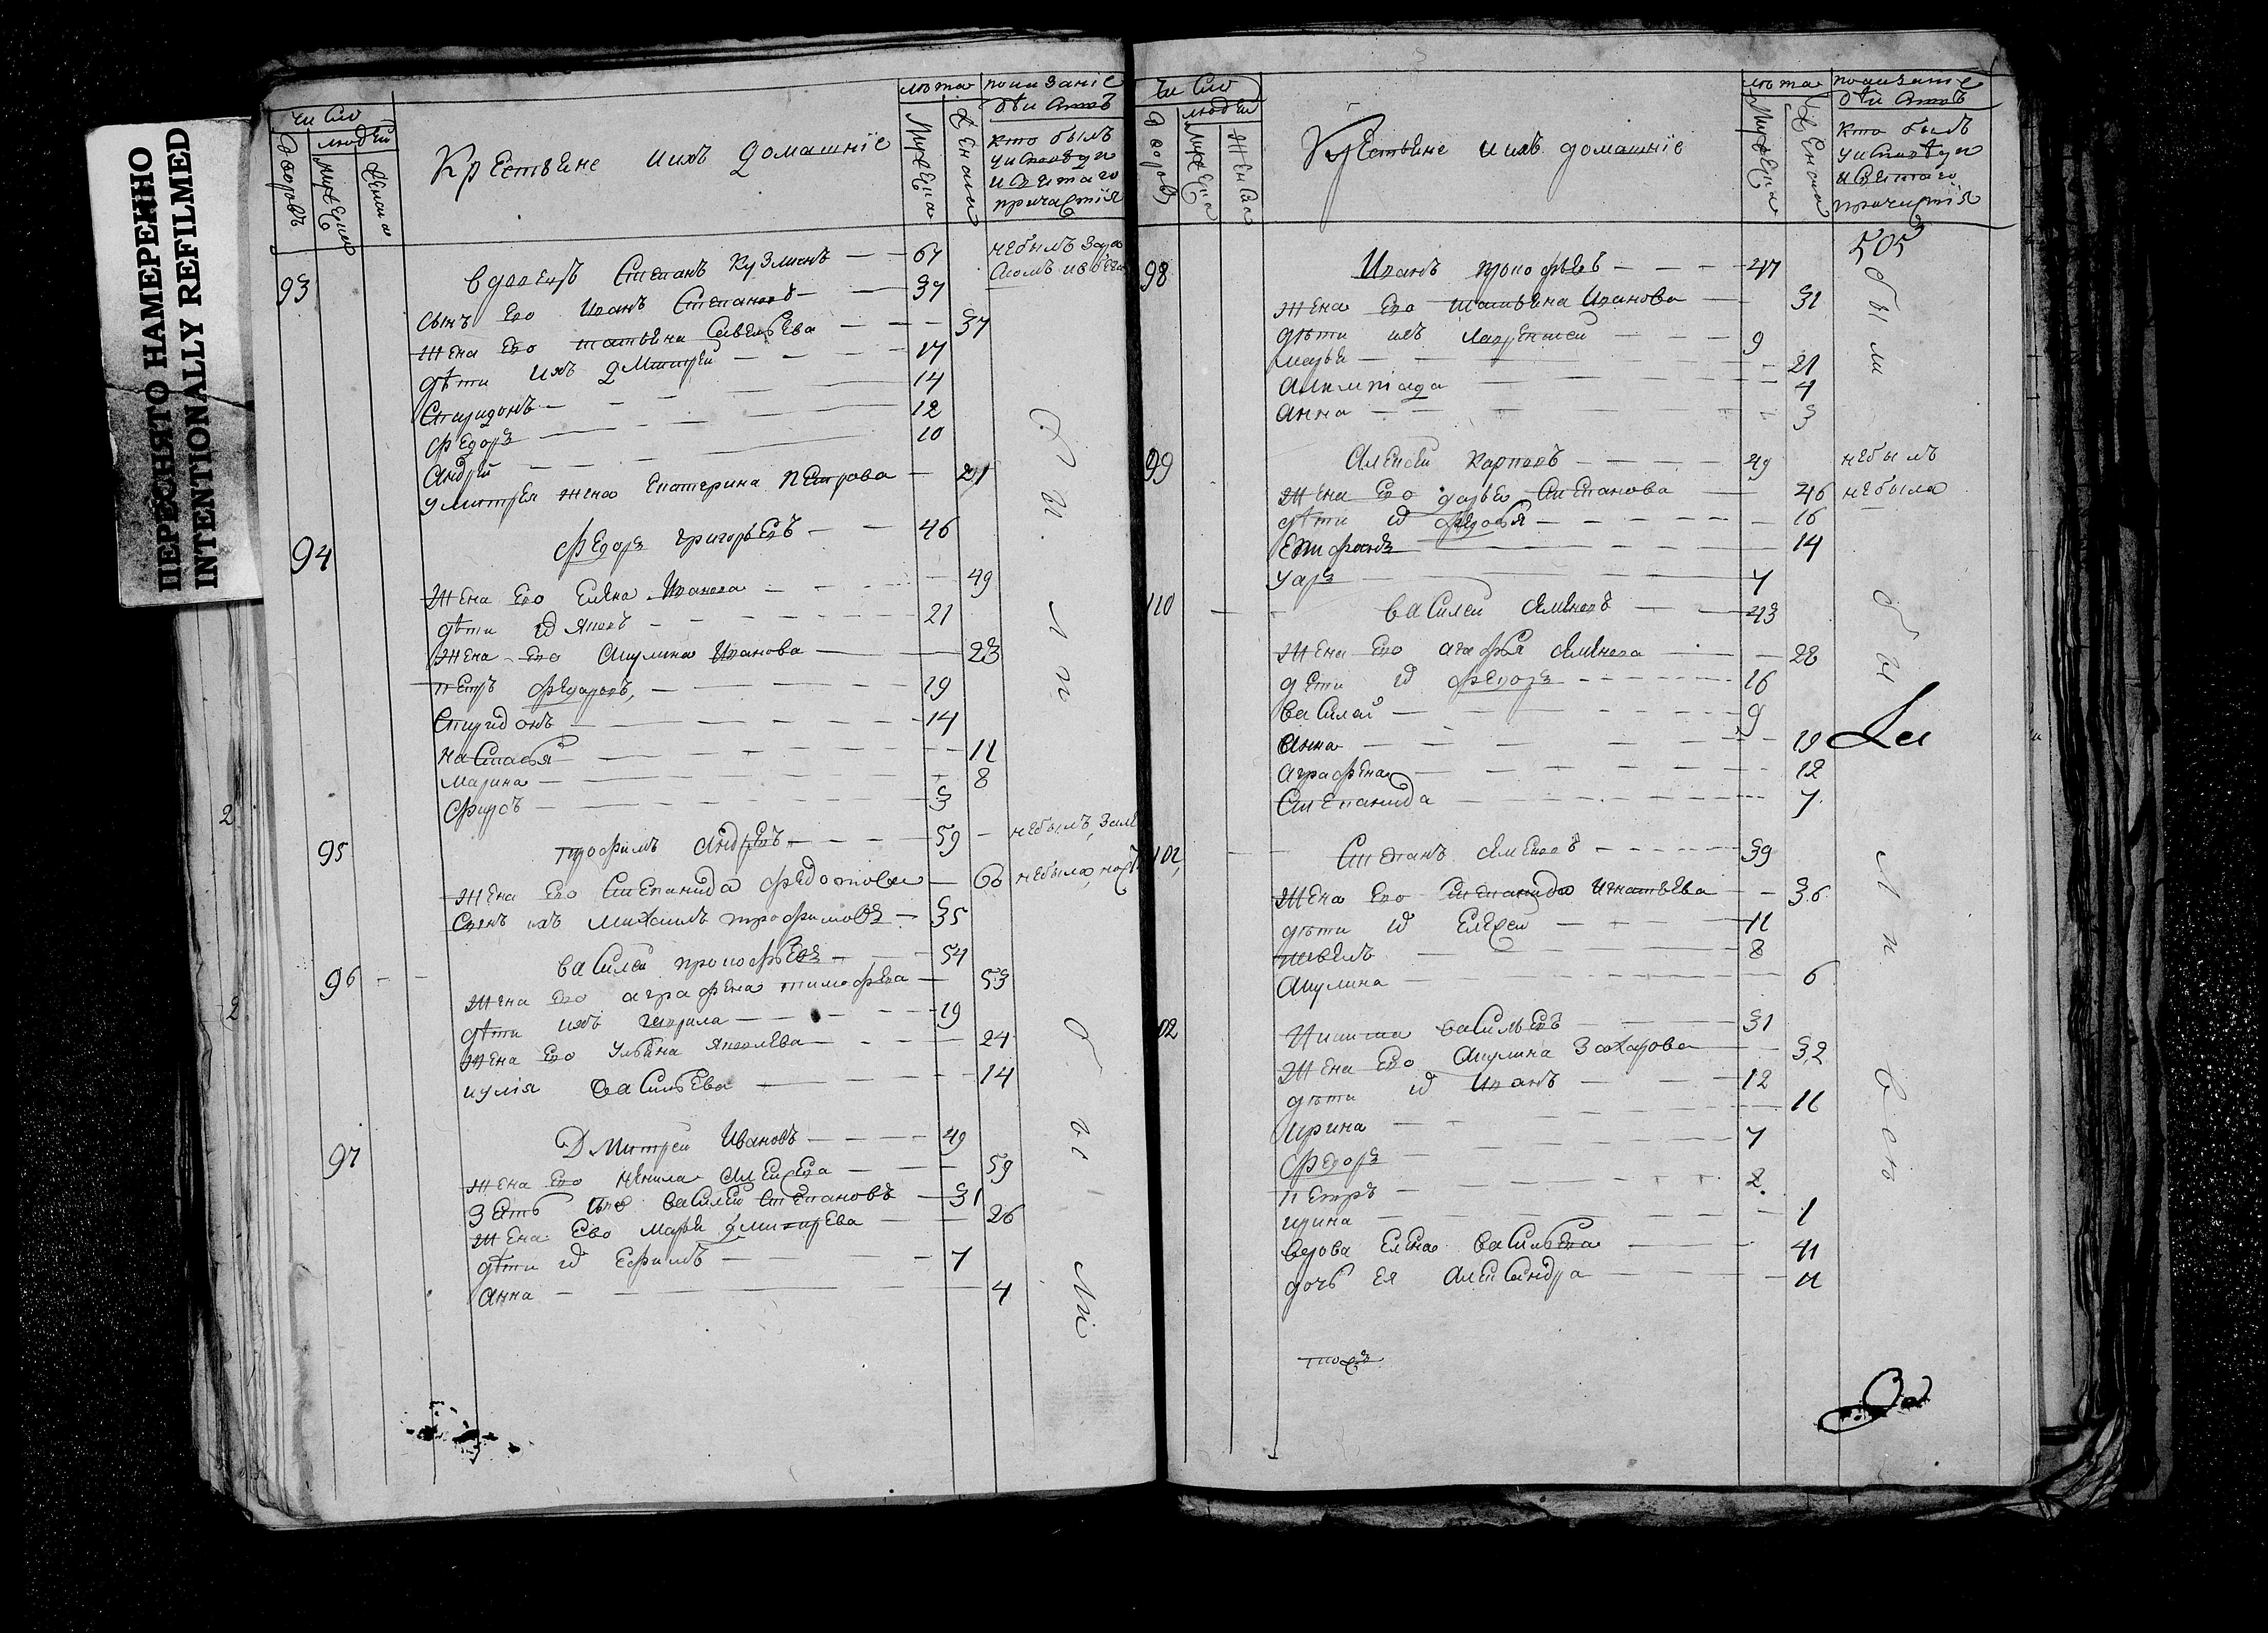 ПЕРЕСНЯТО НАМЕРЕННО
INTENTIONALLY REFILMED
число
дворовъ
людей
мужеска
женска
Крестьяне и ихъ домашніе
лѣта
мужеска
женска
показаніе
дѣйствъ
кто былъ
у исповѣди
и святаго
причастія
93 вдовецъ Степанъ Кузминъ 67 небылъ
сынъ Ево Иванъ Степановъ 37
жена Ево татьяна Савельева 37
дѣти ихъ дмитрей 17
Спиридонъ 14
Федоръ 12
Андрей 10
у митрея жена Екатерина Петрова 21
94 Федоръ григорьевъ 46
жена Ево Елена Иванова 49
дѣти их Яковъ 21
жена Ево Акулина Иванова 23
петръ федоровъ 19
Спиридонъ 14
настасья 11
марина 8
Фирсъ 3
95 трофимъ андреевъ 59 небылъ
жена Ево Степанида федотова 60 небыла
Сынъ ихъ михаилъ трофимовъ 35
96 василей прокофьевъ 54
жена Ево аграфена тимофеева 53
дѣти ихъ гаврила 19
жена Ево ульяна яковлева 24
васильева 14
97 Дмитрей Ивановъ 49
жена Ево ненила алексеева 59
зеть Ево василей степановъ 31
жена Ево марья дмитрева 26
дѣти их Ефимъ 7
анна 4
были
исп
были
число
дворовъ
людей
мужеска
женска
Крестьяне и ихъ домашніе
лѣта
мужеска
женска
показаніе
дѣйствъ
кто былъ
у исповѣди
и святаго
причастія
505
98 Иванъ прокофьевъ 47
жена Ево татьяна Иванова 31
дѣти ихъ лаврентей 9
марья 21
алимпіада 4
анна 3
99 Алексей карповъ 49 небылъ
жена Ево дарья Степанова 46 небыла
дѣти их федосья 16
Епифанъ 14
уаръ 7
110 василей Семеновъ 43
жена Ево агафья Семенова 28
дети их федоръ 16
василей 9
анна 19
аграфена 12
Степанида 7
102 Степанъ Семеновъ 39
жена Ево Степанида Игнатьева 36
дѣти их Елисей 11
павелъ 8
акулина 6
02 Никита васильевъ 31
жена Ево Акулина Захарова 32
дѣти их Иванъ 12
Ирина 11
Федоръ 7
петръ 2
ирина 1
вдова Елена васильева 41
дочь ея Александра 11
были